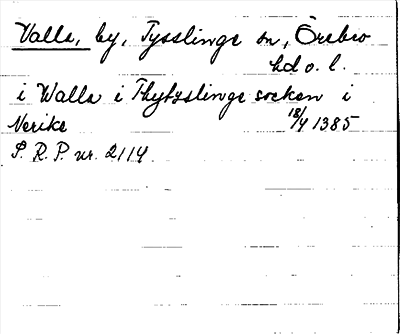 Valla, by, Tysslinge sn, Örebro
hd o. l.
i Walla i Thytyslinge socken i
Nerike 18/4 1385
S. R. P. nr. 2114